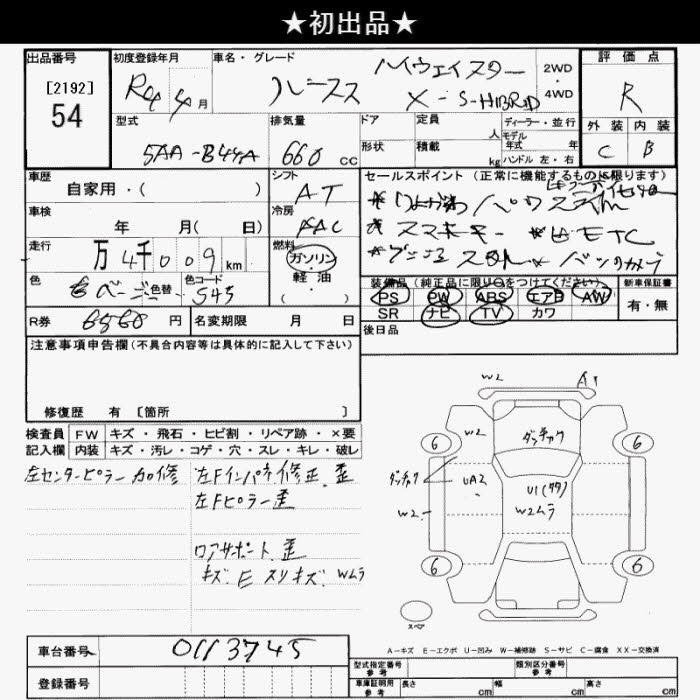 ★初出品★
出品番号
[2192]
54
初度登録年月
R4 4月
車名・グレード
ルークス
ハイウェイスター
X
2WD
・
4WD
評価点
R
外装 内装
C B
型式
5AA-B44A
排気量
660 cc
ドア
形状
定員 人
積載 kg
ディーラー・並行
モデル
年式 年
ハンドル 左・右
車歴
自家用・( )
シフト
AT
車検
年 月( 日)
冷房
AAC
走行
万4千009km
燃料
ガソリン
・
軽・油
・( )
色
ベージュ
色替
色コード
S45
R券
円
名変期限 月 日
セールスポイント(正常に機能するものに限ります)
スマキー
ETC
バックカメラ
装備品(純正品に限り○をつけてください)
PS PW ABS エアB AW
SR ナビ TV カワ
新車保証書
有・無
後日品
注意事項申告欄(不具合内容等は具体的に記入して下さい)
修復歴 有 [箇所 ]
検査員 FW キズ・飛石・ヒビ割・リペア跡・×要
記入欄 内装 キズ・汚レ・コゲ・穴・スレ・キレ・破レ
左センターピラー加修 左Fインパネ修正、歪
左Fピラー歪
ロアサポート歪
キズ・E スリキズ・Wムラ
W2 A1
6 W2 ダッチャク 6
ダッチャク UA2 U1(タタ)
W2 W2ムラ
6 6
スペア
A-キズ E-エクボ U-凹み W-補修跡 S-サビ C-腐食 XX-交換済
車台番号 0113745
登録番号
型式指定番号
参考
類別区分番号
参考
車庫証明用
参考
長さ cm 幅 cm 高さ cm